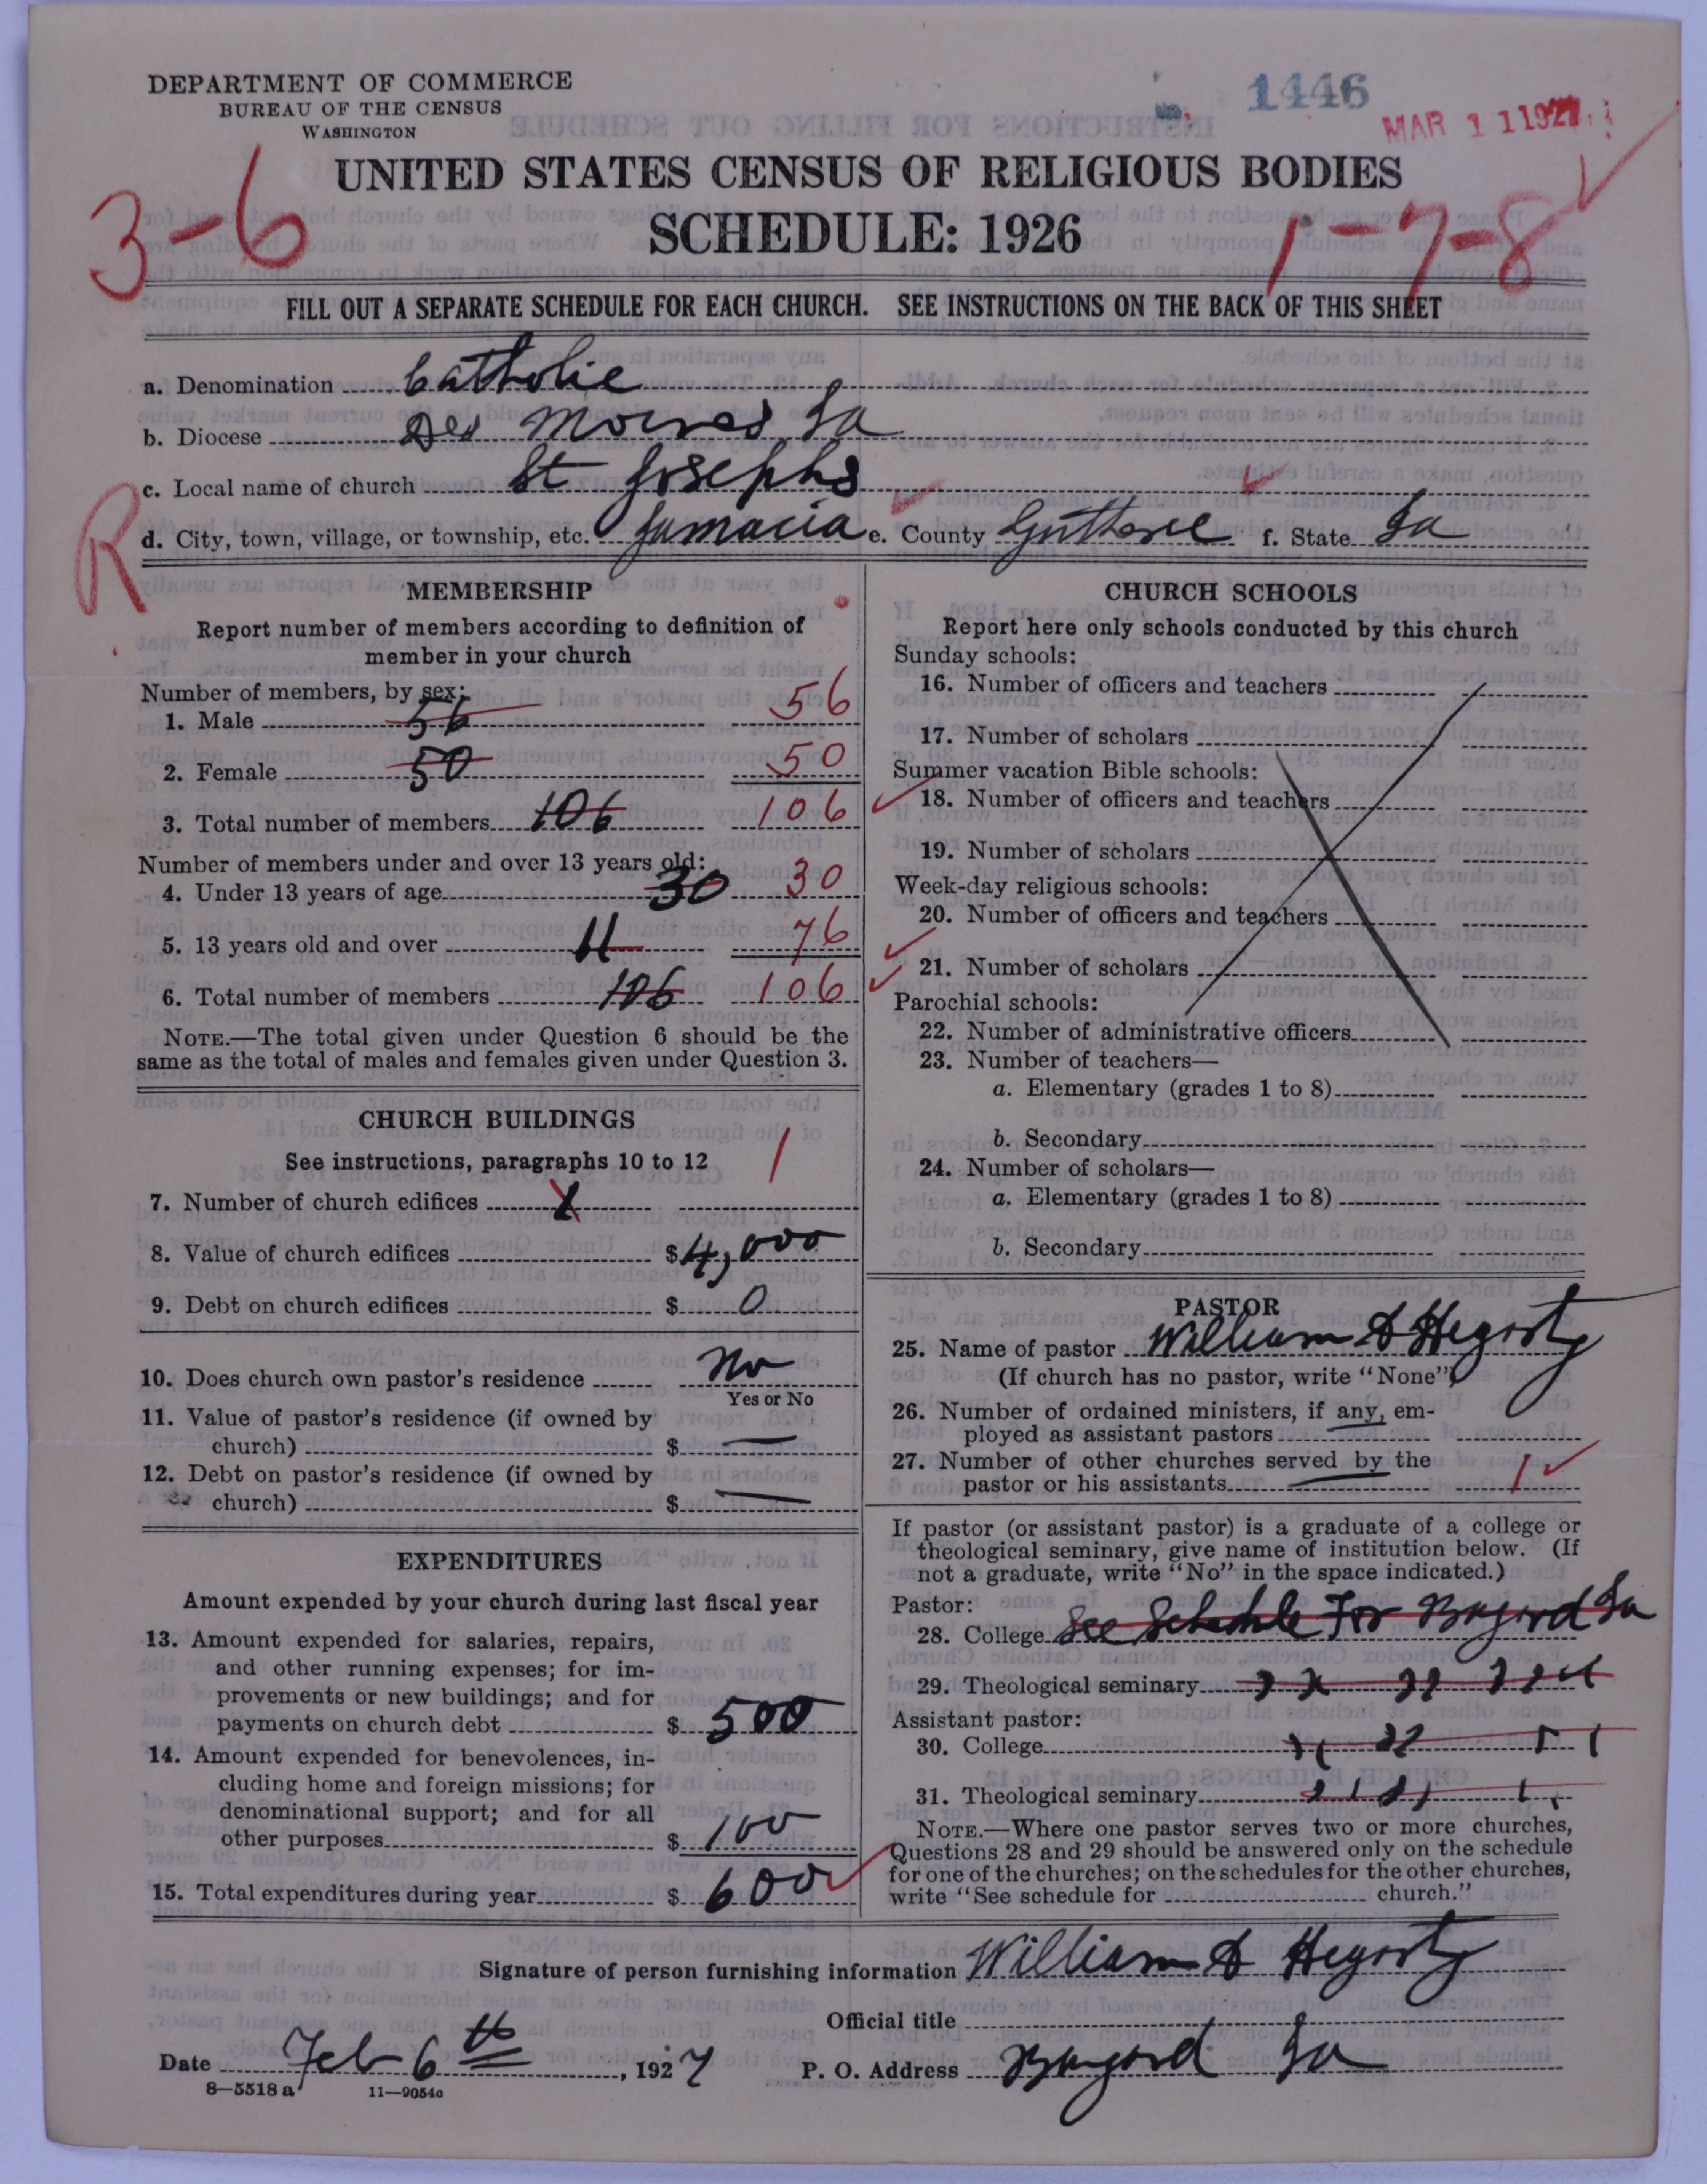 DEPARTMENT OF COMMERCE
BUREAU OF THE CENSUS
WASHINGTON
1446
MAR 11 1927
UNITED STATES CENSUS OF RELIGIOUS BODIES
SCHEDULE: 1926
3-6
1-7-8
FILL OUT A SEPARATE SCHEDULE FOR EACH CHURCH. SEE INSTRUCTIONS ON THE BACK OF THIS SHEET
a. Denomination Catholic
b. Diocese Des Moines Ia
c. Local name of church St Josephs
d. City, town, village, or township, etc. Jamacia e. County Guthrie f. State Ia
R
MEMBERSHIP
Report number of members according to definition of
member in your church
Number of members, by sex:
1. Male 56 56
2. Female 50 50
3. Total number of members 106 106
Number of members under and over 13 years old:
4. Under 13 years of age 30 30
5. 13 years old and over 11 76
6. Total number of members 106 106
NOTE.—The total given under Question 6 should be the
same as the total of males and females given under Question 3.
CHURCH BUILDINGS
See instructions, paragraphs 10 to 12
7. Number of church edifices 1 1
8. Value of church edifices $4,000
9. Debt on church edifices $ 0
10. Does church own pastor's residence No
Yes or No
11. Value of pastor's residence (if owned by
church) $ —
12. Debt on pastor's residence (if owned by
church) $ —
EXPENDITURES
Amount expended by your church during last fiscal year
13. Amount expended for salaries, repairs,
and other running expenses; for im-
provements or new buildings; and for
payments on church debt $ 500
14. Amount expended for benevolences, in-
cluding home and foreign missions; for
denominational support; and for all
other purposes $ 100
15. Total expenditures during year $ 600
CHURCH SCHOOLS
Report here only schools conducted by this church
Sunday schools:
16. Number of officers and teachers
17. Number of scholars
Summer vacation Bible schools:
18. Number of officers and teachers
19. Number of scholars
Week-day religious schools:
20. Number of officers and teachers
21. Number of scholars
Parochial schools:
22. Number of administrative officers
23. Number of teachers—
a. Elementary (grades 1 to 8)
b. Secondary
24. Number of scholars—
a. Elementary (grades 1 to 8)
b. Secondary
PASTOR
25. Name of pastor William A Hegarty
(If church has no pastor, write "None")
26. Number of ordained ministers, if any, em-
ployed as assistant pastors —
27. Number of other churches served by the
pastor or his assistants — 1
If pastor (or assistant pastor) is a graduate of a college or
theological seminary, give name of institution below. (If
not a graduate, write "No" in the space indicated.)
Pastor:
28. College See Schedule For Bayard Ia
29. Theological seminary
Assistant pastor:
30. College
31. Theological seminary
NOTE.—Where one pastor serves two or more churches,
Questions 28 and 29 should be answered only on the schedule
for one of the churches; on the schedules for the other churches,
write "See schedule for church."
Signature of person furnishing information William A Hegarty
Official title
Date Feb 6th, 1927 P. O. Address Bayard Ia
8—5518 a 11—9054c